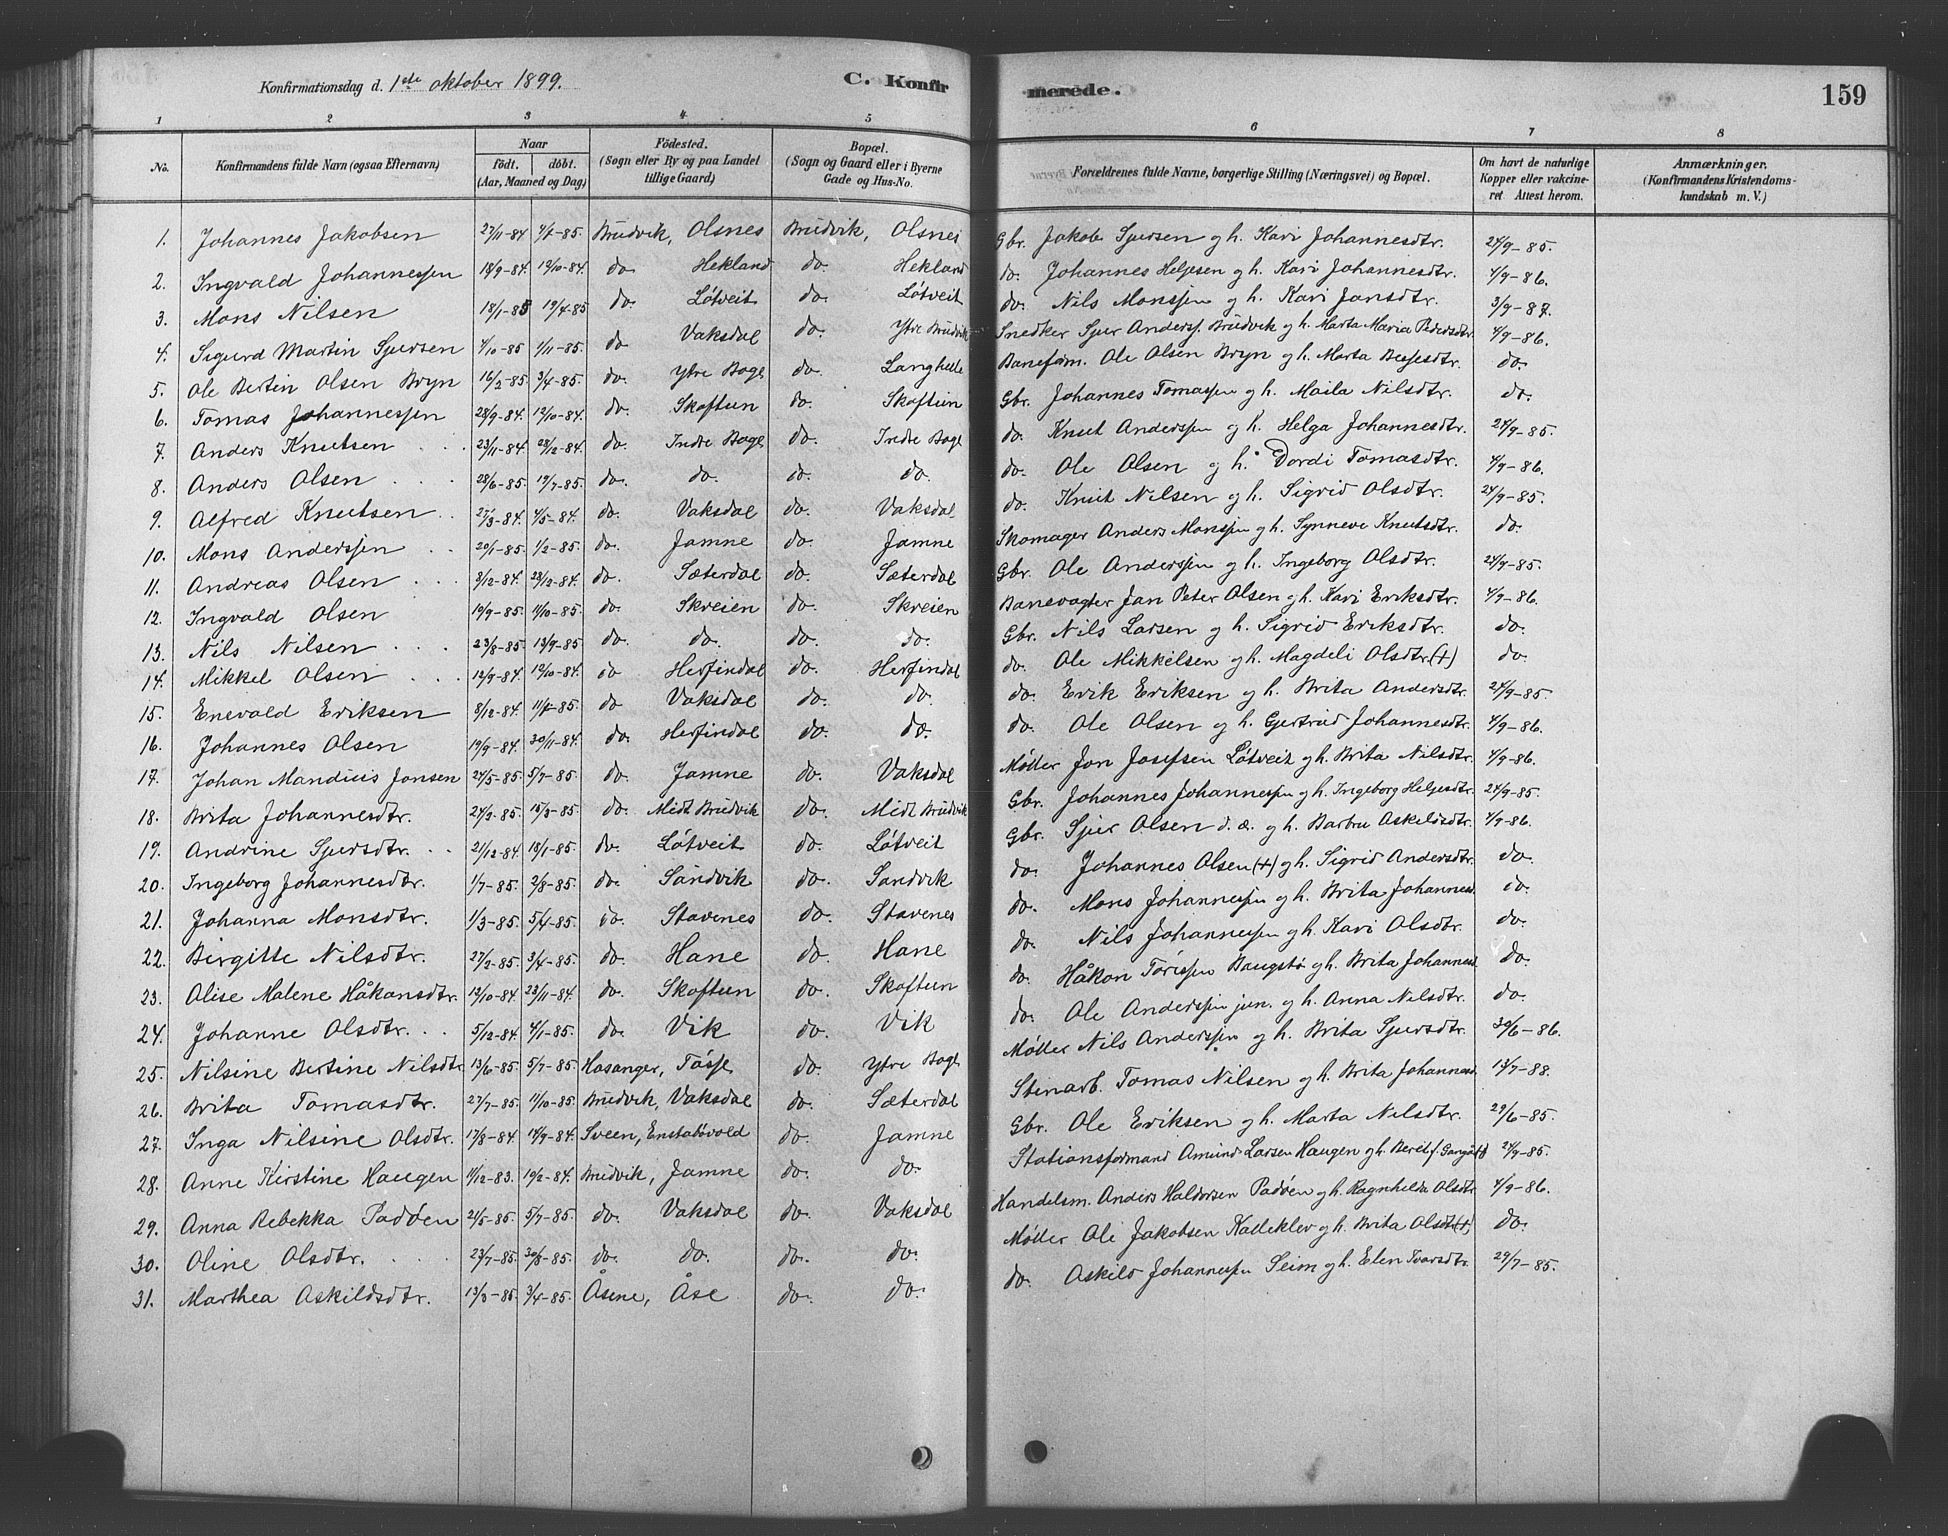 Konfirmationsdag d. 1ste oktober 1899. C. Konfirmerede. 159
1 2 3 4 5 6 7 8
No. Konfirmandens fulde Navn (ogsaa Efternavn) Naar födt. döbt. (Aar, Maaned og Dag) Födested. (Sogn eller By og paa Landet tillige Gaard) Bopæl. (Sogn og Gaard eller i Byerne Gade og Hus-No. Forældrenes fulde Navne, borgerlige Stilling (Næringsvei) og Bopæl. Om havt de naturlige Kopper eller vakcineret Attest herom. Anmærkninger. (Konfirmandens Kristendomskundskab m. V.)
1. Johannes Jakobsen 27/11-84 4/1-85. Brudvik, Olsnes Brudvik, Olsnes Gbr. Jakob Sjursen g h. Kari Johannesdtr. 24/9-85.
2. Ingvald Johannessen 18/9-84. 19/10-84. do Hekland do. Hekland do. Johannes Helgesen g h. Kari Johannesdtr. 4/9-86.
3. Mons Nilsen 18/1-85 19/4-85 do Lötveit do Lötveit do. Nils Monssen g h. Kari Jansdtr. 3/9-87.
4. Sigurd Martin Sjursen 4/10-85 1/11-85. do Vaksdal do. Ytre Brudvik Snedker Sjur Anderss. Brudvik g h. Marta Maria Pedersdtr. 4/9-86.
5. Ole Bertin Olsen Bryn 16/2-85 3/4-85. do. Ytre Boge do. Langhelle Baneform. Ole Olsen Bryn g h. Marta do.
6. Tomas Johannessen 28/9-84. 12/10-84. do. Skoftun do. Skoftun Gbr. Johannes Tomassen g h. Maila Nilsdtr. do.
7. Anders Knutsen 23/11-84 28/12-84. do. Indre Boge do. Indre Boge do. Knut Anderssen g h. Helga Johannesdtr. 24/9-85.
8. Anders Olsen 28/6-85. 19/7-85. do. do. do. do. do. Ole Olsen g h. Dordi Tomasdtr. 4/9-86.
9. Alfred Knutsen 27/3-84. 4/5-84. do. Vaksdal do. Vaksdal do. Knut Nilsen g h. Sigrid Olsdtr. 24/9-85.
10. Mons Anderssen 20/1-85. 1/2-85. do. Jamne do. Jamne Skomager Anders Monssen g h. Synneve Knutsdtr. do.
11. Andreas Olsen 3/12-84. 28/12-84. do. Sæterdal do. Sæterdal Gbr. Ole Anderssen g h. Ingeborg Olsdtr. 24/9-85.
12. Ingvald Olsen 19/9-85. 11/10-85. do. Skreien do. Skreien Banevogter Jan Peter Olsen g h. Kari Eriksdtr. 4/9-86.
13. Nils Nilsen 23/8-85. 13/9-85 do. do. do. do. Gbr. Nils Larsen g h. Sigrid Eriksdtr. do.
14. Mikkel Olsen 12/9-84. 12/10-84. do Herfindal do. Herfindal do. Ole Mikkelsen g h. Magdeli Olsdtr (+) do.
15. Enevald Eriksen 8/12-84. 11/1-85. do Vaksdal do. do. do. Erik Eriksen g h. Brita Andersdtr. 24/9-85
16. Johannes Olsen 19/9-84. 30/11-84. do. Herfindal do. do. do. Ole Olsen g h. Gjertrud Johannesdtr. 4/9-86.
17. Johan Mandius Jonsen 24/5-85. 5/7-85. do. Jamne do. Vaksdal Möller Jon Josefsen Lötveit g h. Brita Nilsdtr. 4/9-86.
18. Brita Johannesdtr. 24/3-85. 15/3-85. do. Midt Brudvik do. Midt Brudvik Gbr. Johannes Johannessen g h. Ingeborg Helgesdtr. 24/9-85.
19. Andrine Sjursdtr. 21/12-84. 18/1-85. do. Lötveit do. Lötveit Gbr. Sjur Olsen d. æ. g h. Barbru Askildsdtr. 4/9-86.
20. Ingeborg Johannesdtr. 1/7-85. 2/8-85. do. Sandvik do. Sandvik do. Johannes Olsen (+) g h. Sigrid Andersdtr. do.
21. Johanna Monsdtr. 1/3-85. 5/4-85. do. Stavenes do. Stavenes do. Mons Johannessen g h. Brita Johannesd. do.
22. Birgitte Nilsdtr. 27/2-85. 3/4-85. do. Hane do. Hane do. Nils Johannessen g h. Kari Olsdtr. do.
23. Olise Malene Håkonsdtr. 12/10-84. 23/11-84. do. Skoftun do. Skoftun do. Håkon Törissen Baugstö g h. Brita Johannesd. do.
24. Johanne Olsdtr. 5/12-84 4/1-85. do. Vik do. Vik do. Ole Anderssen jun. g h. Anna Nilsdtr. do.
25. Nilsine Bertine Nilsdtr 13/6-85. 5/7-85. Hosanger, Tösse do. Ytre Boge Möller Nils Anderssen g h. Brita Sjursdtr. 30/6-86.
26. Brita Tomasdtr. 27/7-85. 11/10-85. Brudvik, Vaksdal do. Sæterdal Stenarb. Tomas Nilsen g h. Brita Johannesd. 13/7-88.
27. Inga Nilsine Olsdtr. 17/8-84. 14/9-84. Sveen, do. Jamne Gbr. Ole Eriksen g h. Marta Nilsdtr. 29/6-85.
28. Anne Kirstine Haugen 11/12-83. 10/2-84. Brudvik, Jamne do. do. Stationsformand Amund Larsen Haugen g h. Berit f. 24/9-85.
29. Anna Rebekka Padöen 21/5-85. 5/7-85. do. Vaksdal do. Vaksdal Handelsm. Anders Haldorsen Padöen g h. Ragnhilda Olsdtr 4/9-86.
30. Oline Olsdtr. 23/7-85. 30/8-85. do. do. do. do. Möller Ole Jakobsen Kalleklev g h. Brita Olsdtr (+) do.
31. Marthea Askildsdtr. 13/3-85. 3/4-85. Åsene, Åse do. do. do. Askild Johannessen Seim g h. Elen Ivarsdtr. 29/7-85.